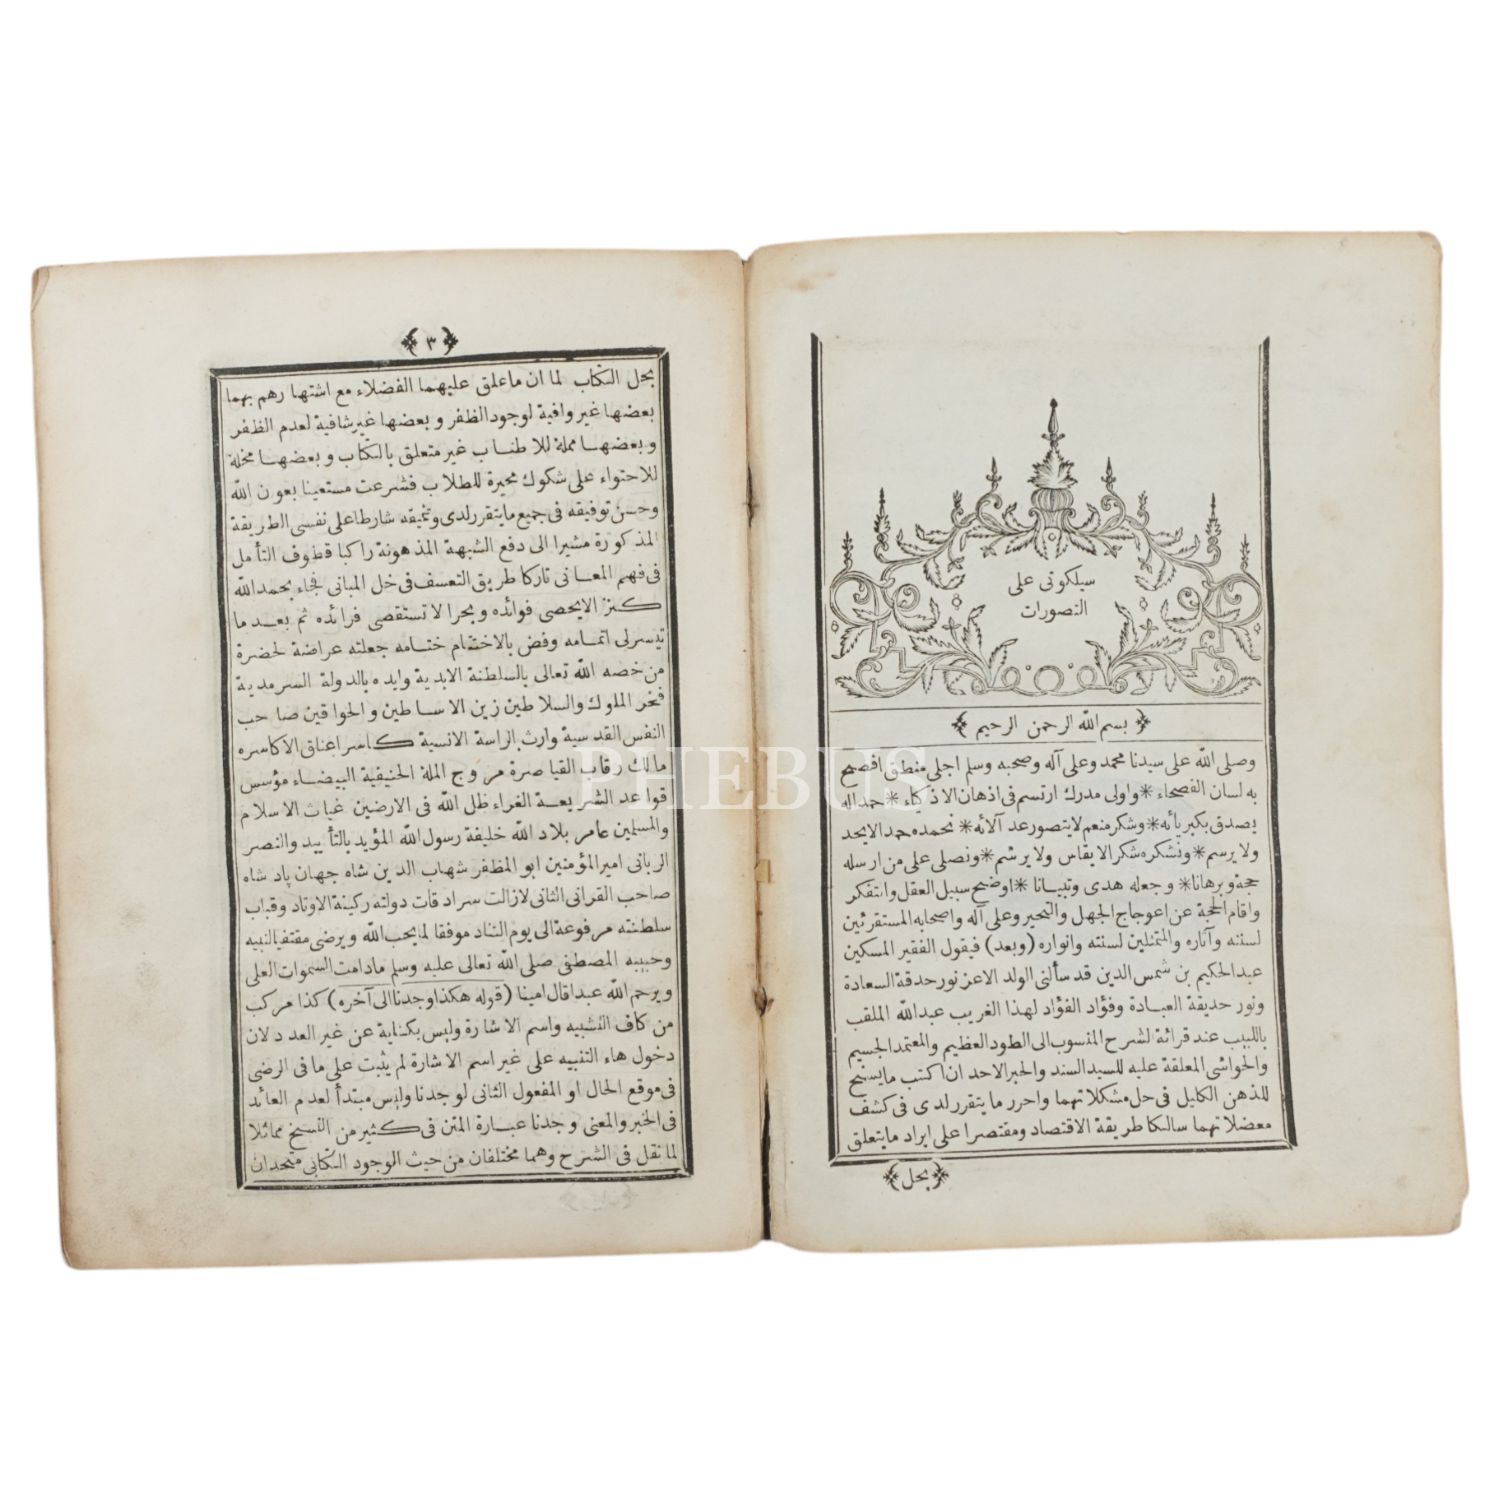 سيلكوتى على
التصورات
بسم الله الرحمن الرحيم
وصلى الله على سيدنا محمد وعلى آله وصحبه وسلم اجلى منطق افصح
به لسان الفصحاء * واولى مدرك ارتسم فى اذهان الاذكياء * حمد اله
يصدق بكبريائه * وشكر منعم لا يتصور عد آلائه * نحمده حمد الايحد
ولا يرسم * ونشكره شكر الايقاس ولا يرشم * ونصلى على من ارسله
حجة وبرهانا * وجعله هدى وتبيانا * اوضح سبيل العقل والتفكر
واقام الحجة عن اعوجاج الجهل والتحير وعلى آله واصحابه المستقرئين
لسنته وآثاره والمتمثلين لسنته وانواره (وبعد) فيقول الفقير المسكين
عبدالحكيم بن شمس الدين قد سألنى الولد الاعز نور حدقة السعادة
ونور حديقة العبادة وفؤاد الفؤاد لهذا الغريب عبدالله الملقب
باللبيب عند قرائة لشرح المنسوب الى الطود العظيم والمعتمد الجسيم
والحواشى المعلقة عليه للسيد السند والحبر الاحد ان اكتب ما يسنح
للذهن الكليل فى حل مشكلاتهما واحرر ما يتقرر لدى فى كشف
معضلاتهما سالكا طريقة الاقتصاد ومقتصرا على ايراد ما يتعلق
بحل
٣
بحل الكتاب لما ان ما علق عليهما الفضلاء مع اشتهارهم بهما
بعضها غير وافية لوجود الظفر وبعضها غير شافية لعدم الظفر
وبعضها مملة للاطناب غير متعلق بالكتاب وبعضها مخلة
للاحتواء على شكوك محيرة للطلاب فشرعت مستعينا بعون الله
وحسن توفيقه فى جميع ما يتقرر لدى وتنميقه شارطا على نفسى الطريقة
المذكورة مشيرا الى دفع الشبهة المذهونة راكبا قطوف التأمل
فى فهم المعانى تاركا طريق التعسف فى حل المبانى فجاء بحمد الله
كنز الايحصى فوائده وبحرا لا تستقصى فرائده ثم بعد ما
تيسرلى اتمامه وفض بالاختتام ختامه جعلته عراضة لحضرة
من خصه الله تعالى بالسلطنة الابدية وايده بالدولة السرمدية
فخر الملوك والسلاطين زين الاساطين والخواقين صاحب
النفس القدسية وارث الراسة الانسية كاسر اعناق الاكاسره
مالك رقاب القياصرة مروج الملة الحنيفية البيضاء مؤسس
قواعد الشريعة الغراء ظل الله فى الارضين غياث الاسلام
والمسلمين عامر بلاد الله خليفة رسول الله المؤيد بالتأييد والنصر
الربانى امير المؤمنين ابو المظفر شهاب الدين شاه جهان پادشاه
صاحب القرانى الثانى لازالت سرادقات دولته ركينة الاوتاد وقباب
سلطنته مرفوعة الى يوم التناد موفقا لما يحب الله ويرضى مقتفيا لنبيه
وحبيبه المصطفى صلى الله تعالى عليه وسلم مادامت السموات العلى
ويرحم الله عبدا قال امينا (قوله هكذا وجدنا الى آخره) كذا مركب
من كاف التشبيه واسم الاشارة وليس بكناية عن غير العدد لان
دخول هاء التنبيه على غير اسم الاشارة لم يثبت على ما فى الرضى
فى موقع الحال او المفعول الثانى لوجدنا وليس مبتدأ لعدم العائد
فى الخبر والمعنى وجدنا عبارة المتن فى كثير من النسخ مماثلا
لما نقل فى الشرح وهما مختلفان من حيث الوجود الكتابى متحدان
PHEBUS